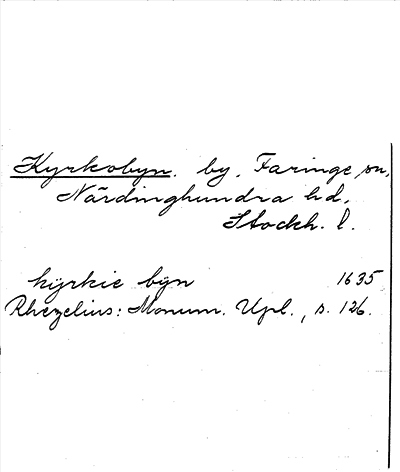 Kyrkobyn. by, Faringe sn,
Närdinghundra hd.
Stockh. l.
kÿrkie bÿn 1635
Rhezelius: Monum. Upl., s. 126.